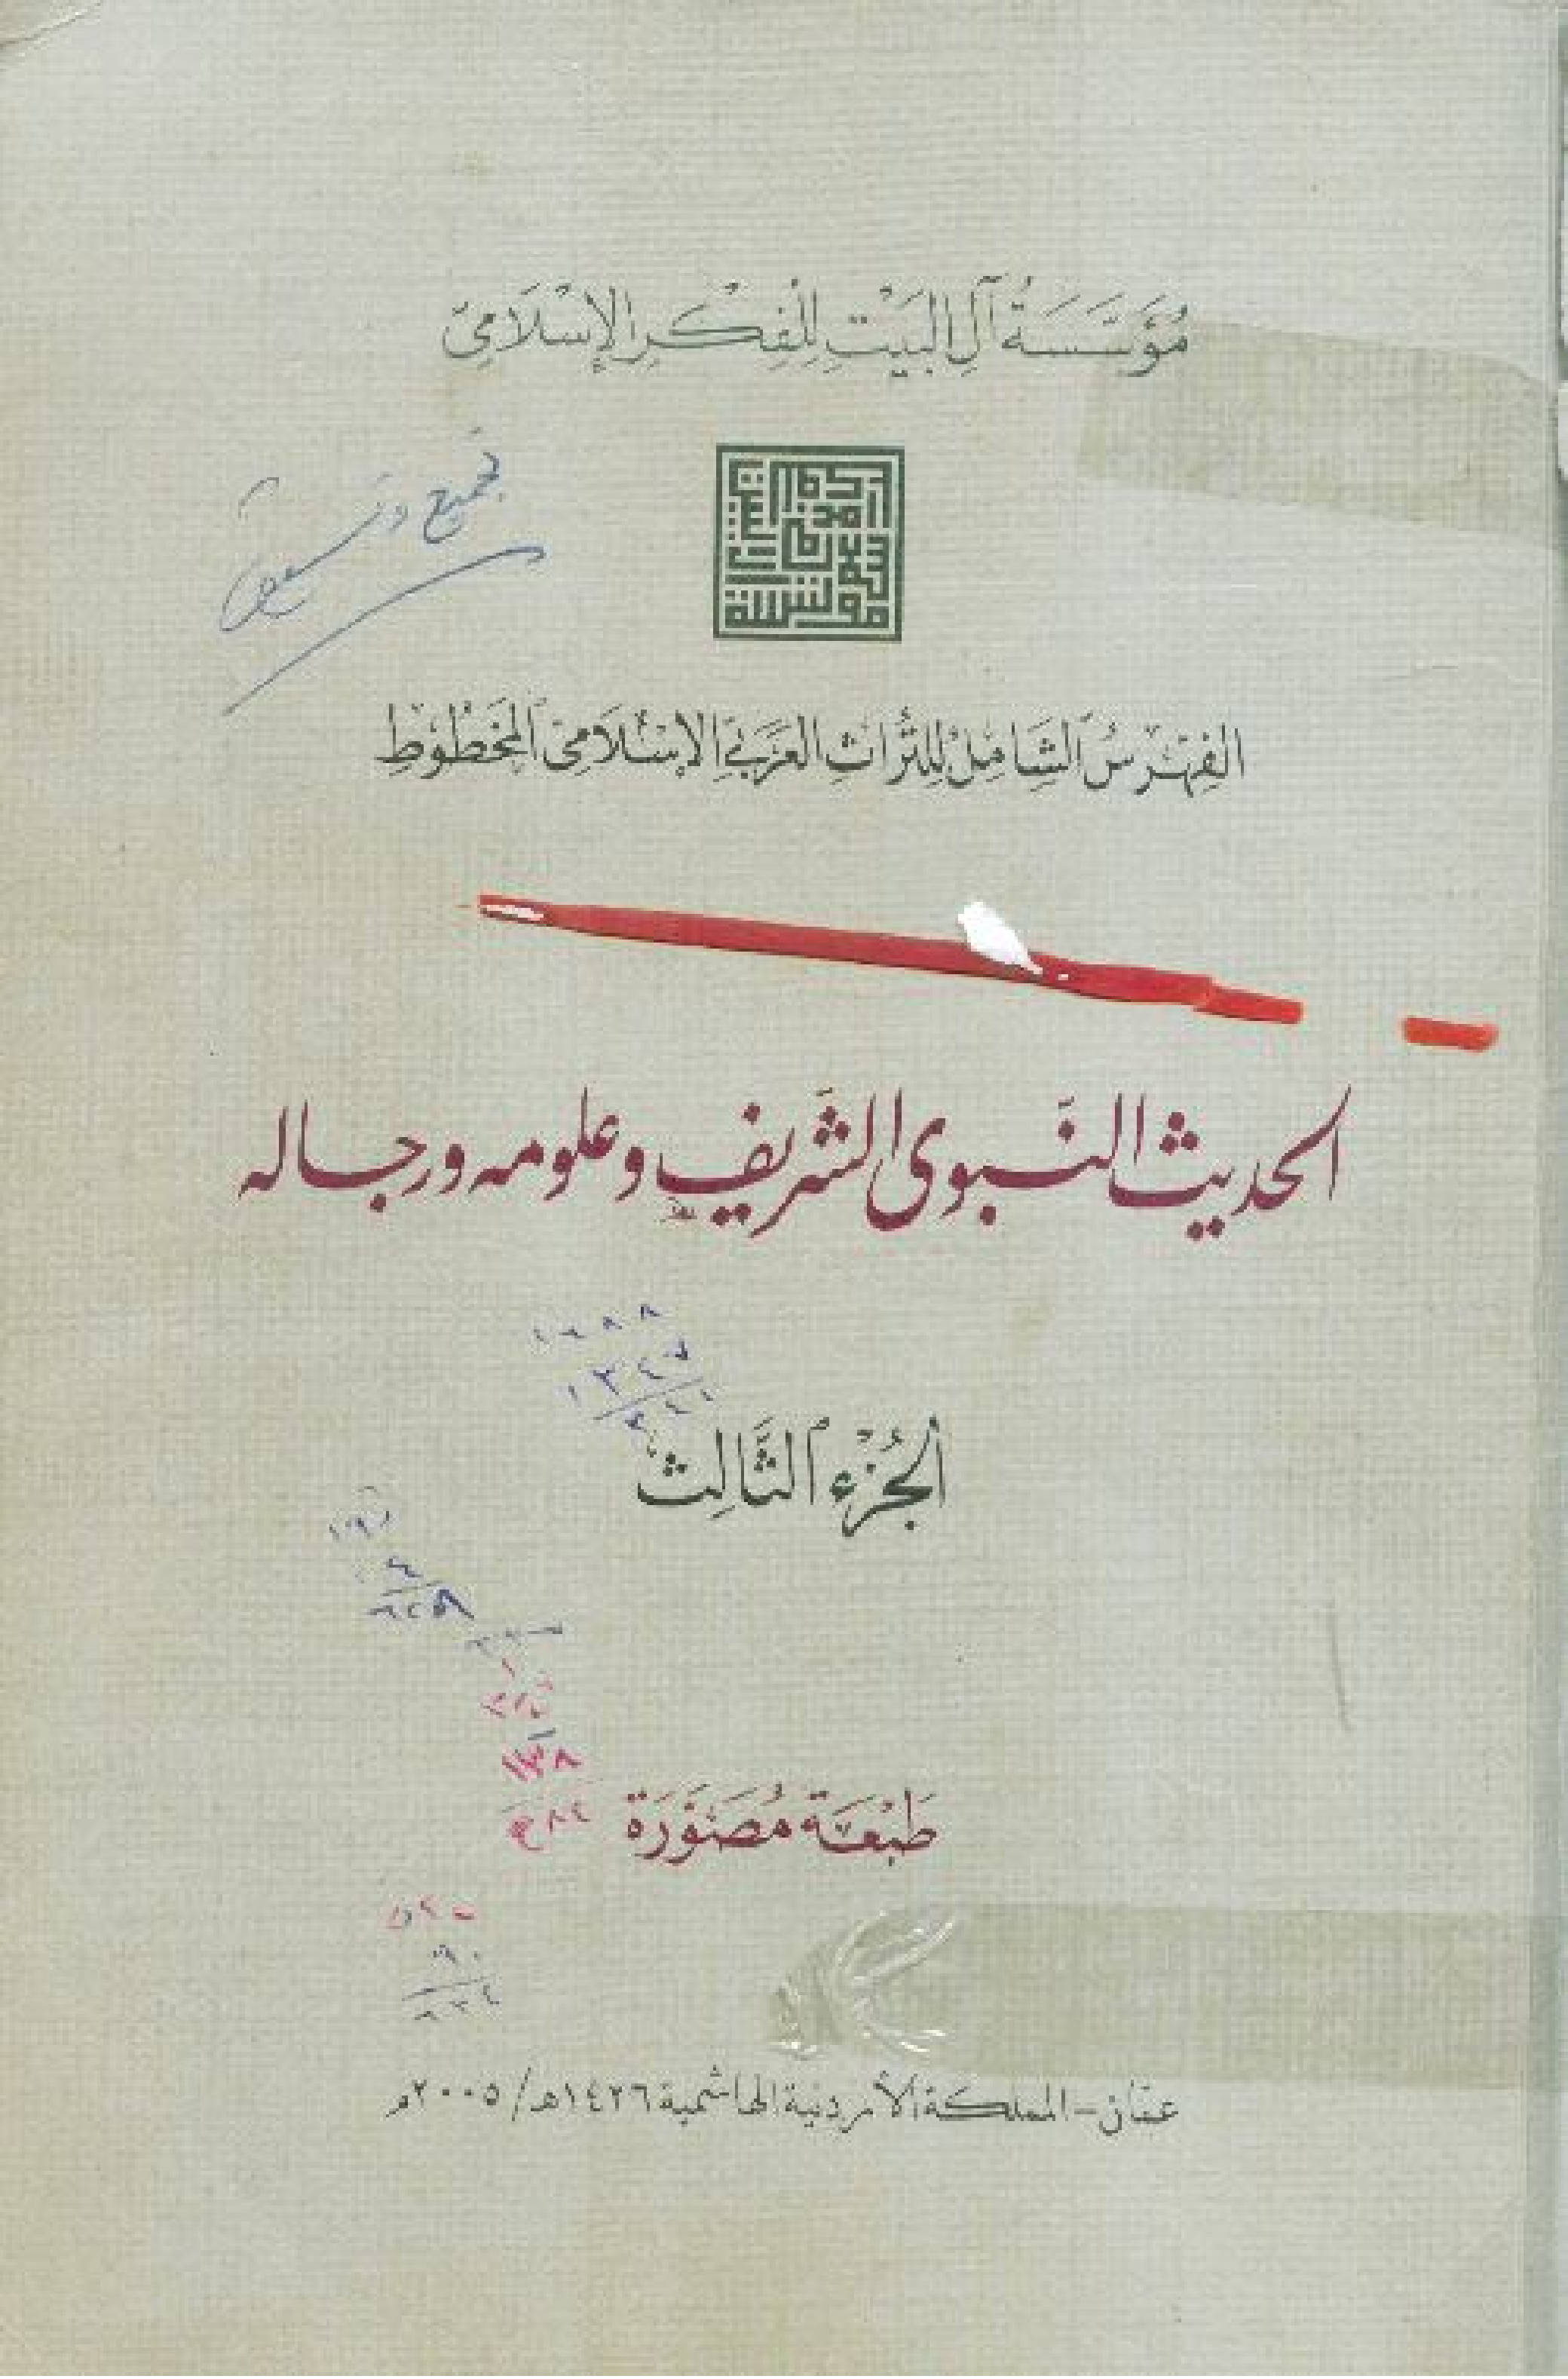 مُؤَسَّسَةُ آلِ البَيْتِ لِلْفِكْرِ الإِسْلَامِيّ
تجميع وتنسيق
الفِهْرِسُ الشَّامِلُ لِلتُّرَاثِ العَرَبِيِّ الإِسْلَامِيّ المَخْطُوطِ
الحديث النبوى الشّريف وعلومه ورجاله
١٣٤٥
الجُزْءُ الثَّالِث
طَبْعَة مُصَوَّرَة
عمّان - المملكة الأردنية الهاشمية ١٤٢٦هـ/٢٠٠٥م